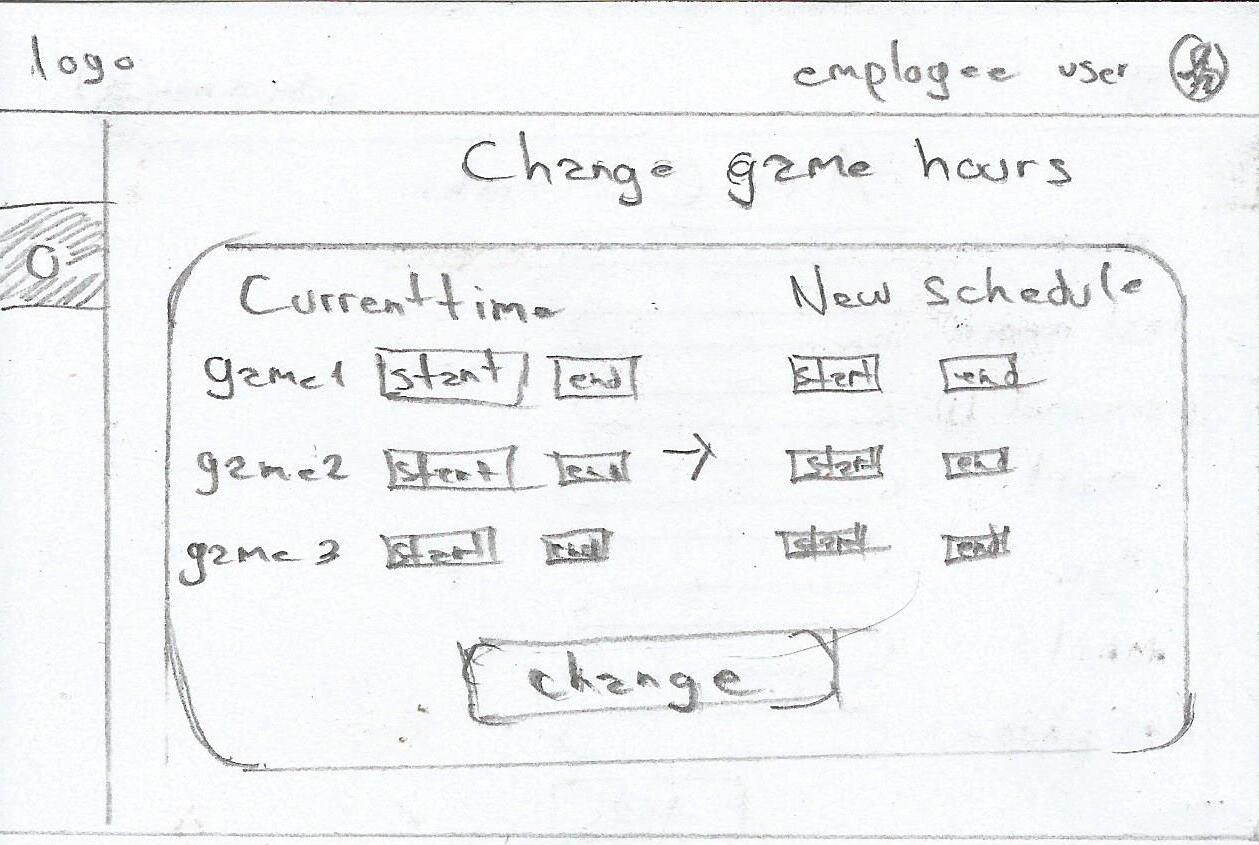 logo employee user
Change game hours
Current time New Schedule
game1 start end start end
game2 start end → start end
game 3 start end start end
change